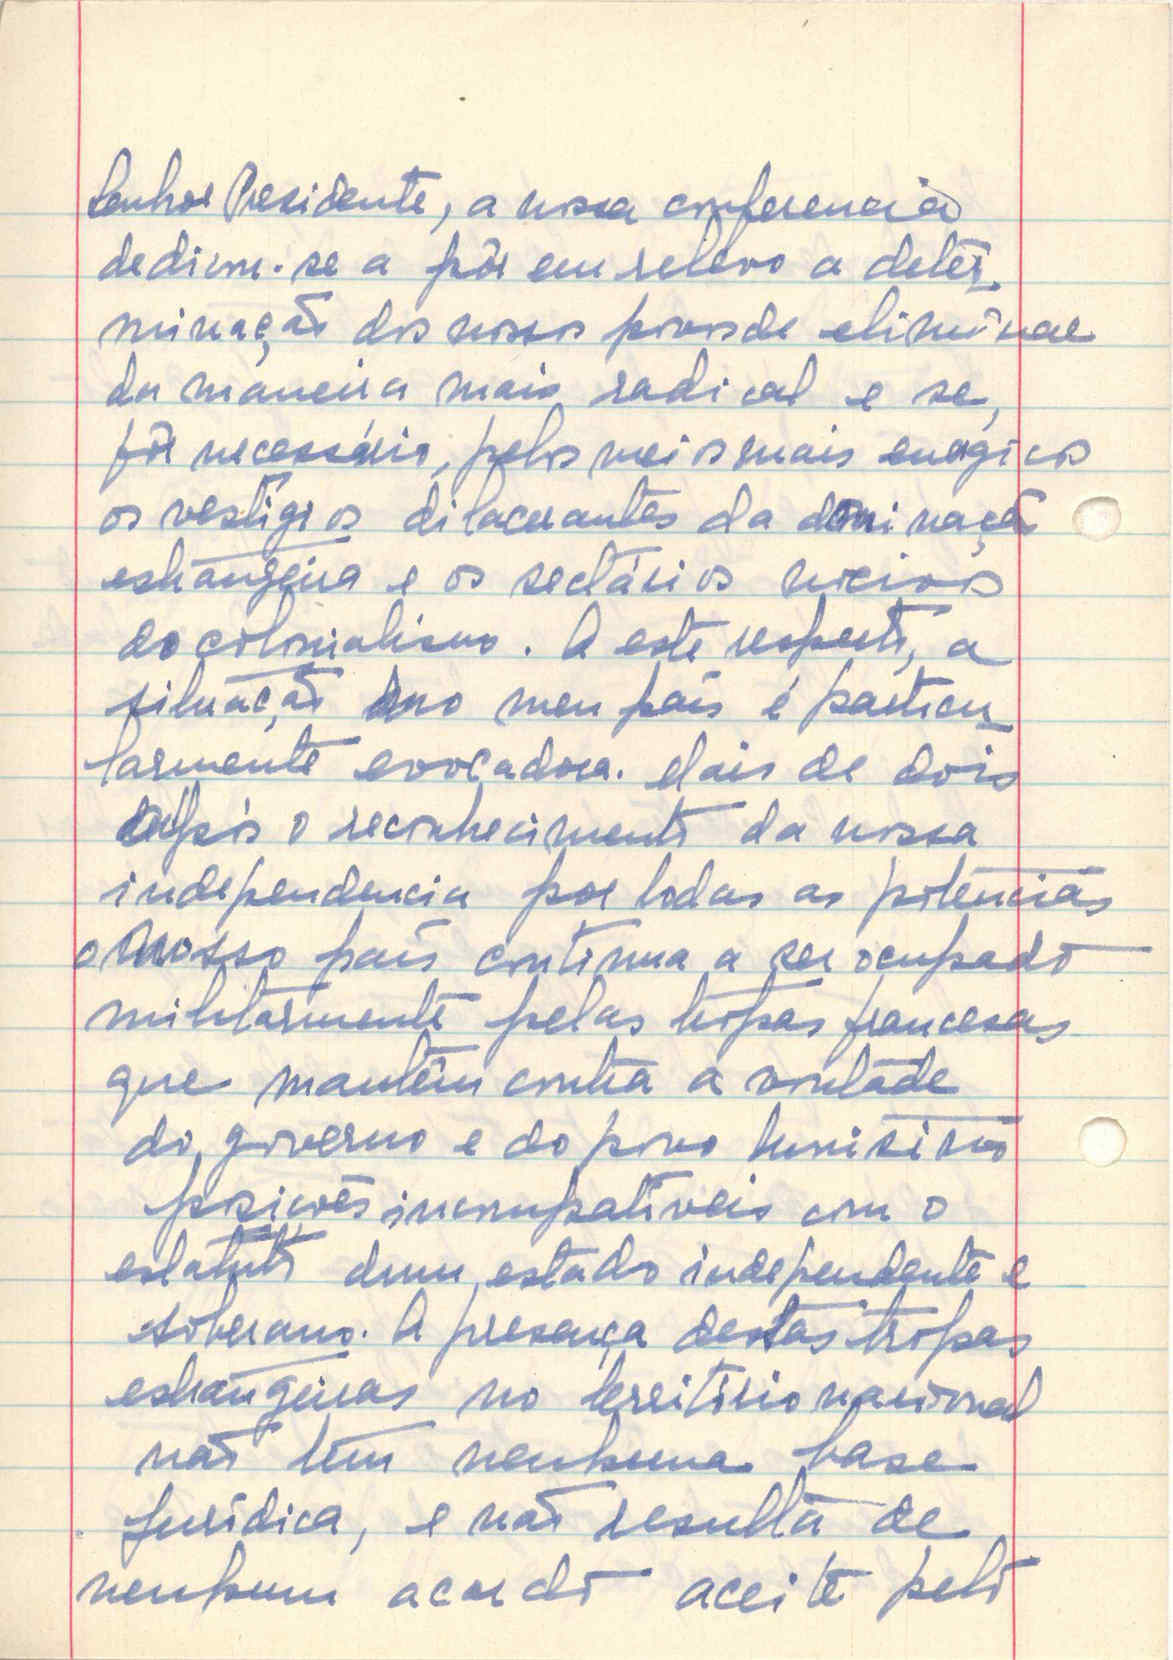 Senhor Presidente, a nossa conferencia
dedicou-se a pôr em relevo a deter
minação dos nossos povos de eliminar
da maneira mais radical e se,
fôr necessário, pelos meios mais energicos
os vestigios dilacerantes da dominação
estrangeira e os sectários nocivos
do colonialismo. A este respeito, a
situação no meu país é particu
larmente evocadora. Mais de dois
após o reconhecimento da nossa
independencia por todas as potências
o nosso país continua a ser ocupado
militarmente pelas tropas francesas
que mantêm contra a vontade
do governo e do povo tunisino
posições incompatíveis com o
estatuto dum estado independente e
soberano. A presença destas tropas
estrangeiras no território nacional
não têm nenhuma base
jurídica, e não resulta de
nenhum acordo aceite pelo